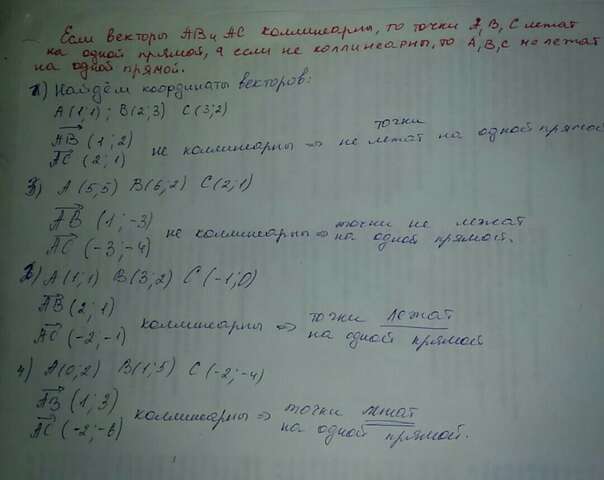 Если векторы AB и AC коллинеарны, то точки A, B, C лежат
на одной прямой, а если не коллинеарны, то A, B, C не лежат
на одной прямой.
1) Найдём координаты векторов:
A (1;1); B(2;3) C(3;2)
AB (1;2)
AC (2;1) не коллинеарны => точки не лежат на одной прямой
3) A (5,5) B(6;2) C(2;1)
AB (1;-3)
AC (-3;-4) не коллинеарны => точки не лежат
на одной прямой.
2) A(1;1) B(3;2) C(-1;0)
AB(2;1)
AC (-2;-1) коллинеарны => точки лежат
на одной прямой
4) A(0;2) B(1;5) C(-2;-4)
AB (1;3)
AC (-2;-6) коллинеарны => точки лежат
на одной прямой.